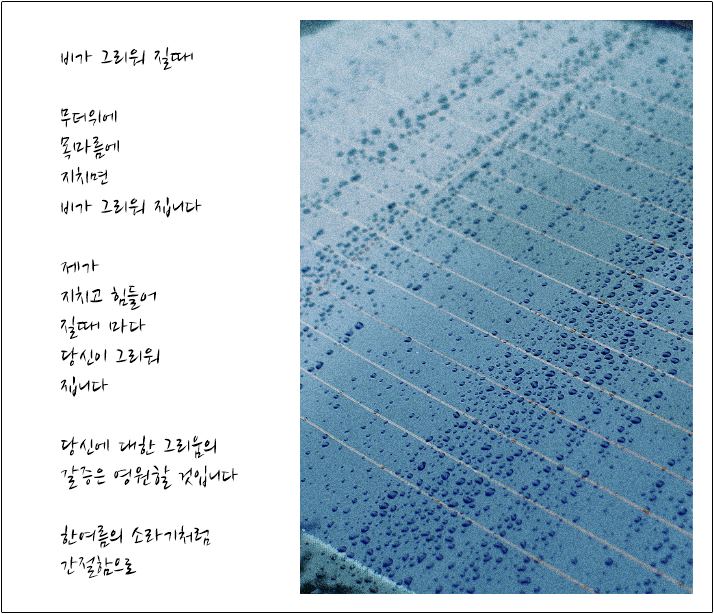 비가 그리워 질때
무더위에
목마름에
지치면
비가 그리워 집니다
제가
지치고 힘들어
질때 마다
당신이 그리워
집니다
당신에 대한 그리움의
갈증은 영원할 것입니다
한여름의 소라기처럼
간절함으로